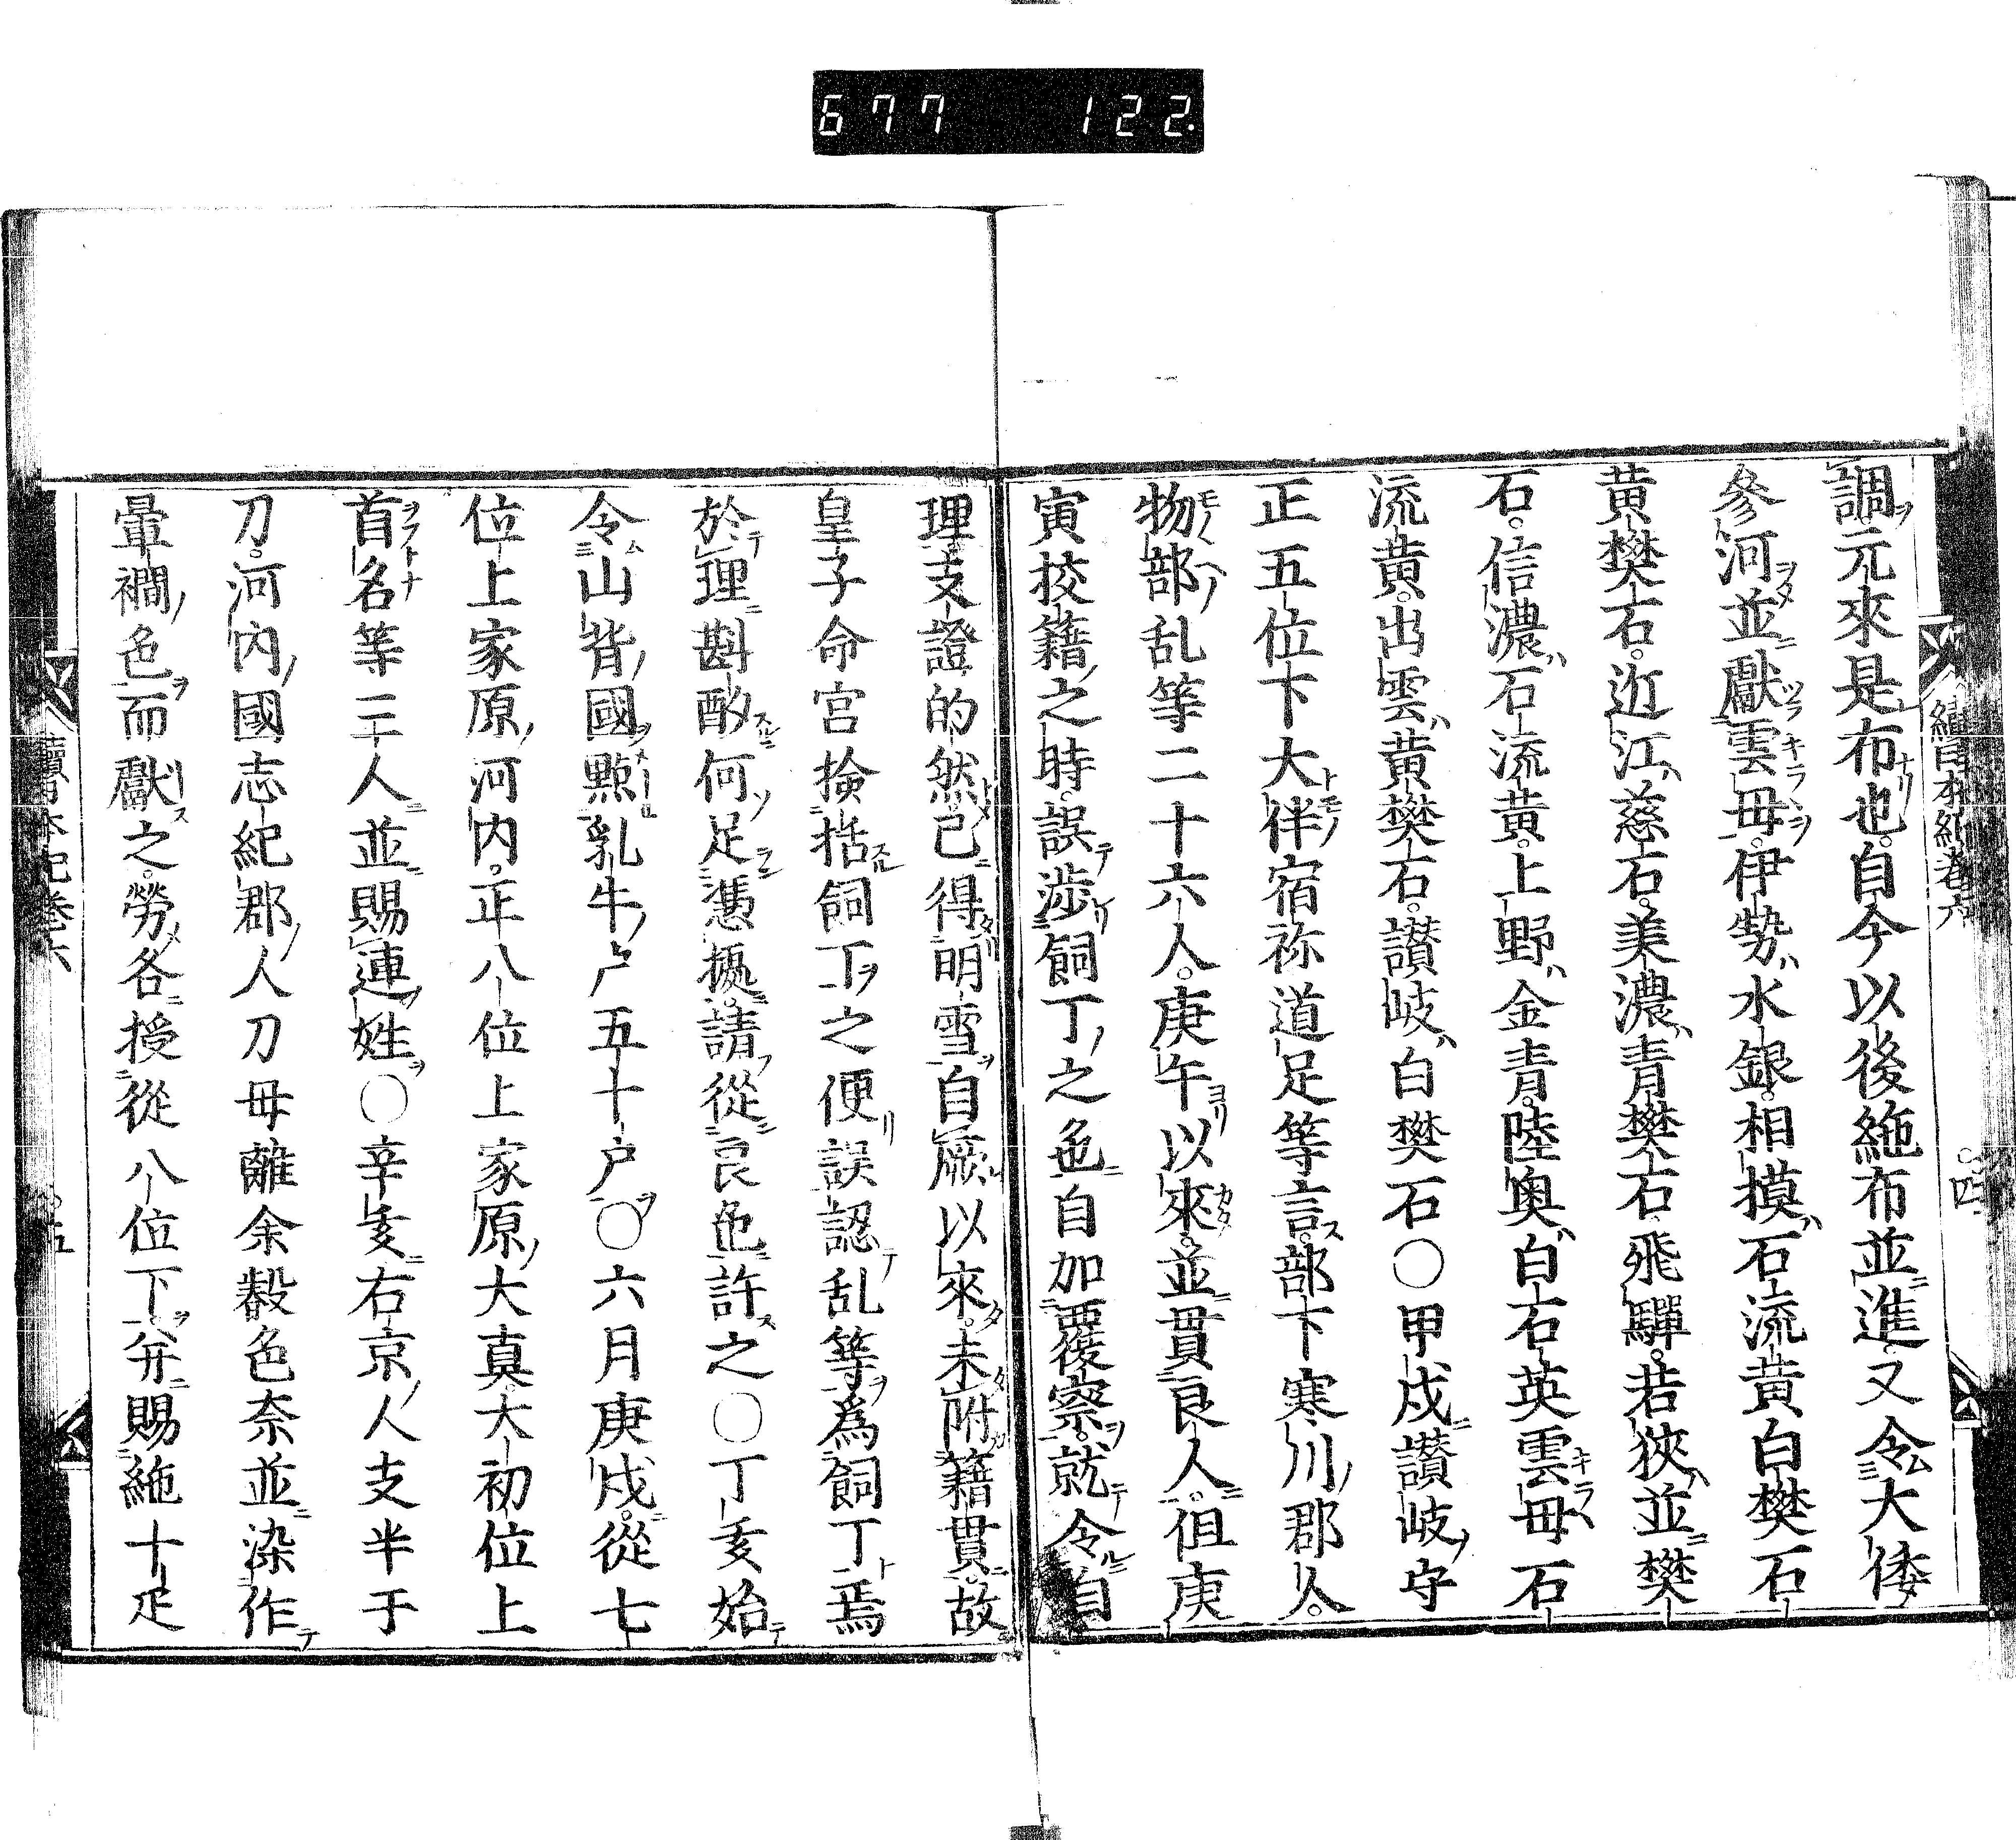 677 122.
續日本紀卷六
四
調元來是布也。自今以後絁布並進。又令大倭
參河並獻雲母。伊勢水銀。相摸石流黃白樊石
黃樊石。近江慈石。美濃青樊石。飛驒。若狹並樊
石。信濃石流黃。上野金青。陸奧白石英雲母石
流黃。出雲黃樊石。讃岐白樊石〇甲戌讃岐守
正五位下大伴宿祢道足等言。部下寒川郡人。
物部乱等二十六人。庚午以來。並貫良人。但庚
寅挍籍之時。誤渉飼丁之色自加覆察。就令自
理支證的然。已得明雪。自厥以來。未附籍貫。故
皇子命宮撿括飼丁之便誤認乱等爲飼丁焉
於理斟酌何足憑據。請從良色許之〇丁亥始
令山背國點乳牛戶五十戶〇六月庚戌。從七
位上家原河内。正八位上家原大真。大初位上
首名等三人並賜連姓〇辛亥右京人支半于
刀。河内國志紀郡人刀母離余叡色奈並染作
暈襉色而獻之。勞各授從八位下。并賜絁十疋
續日本紀卷六
五